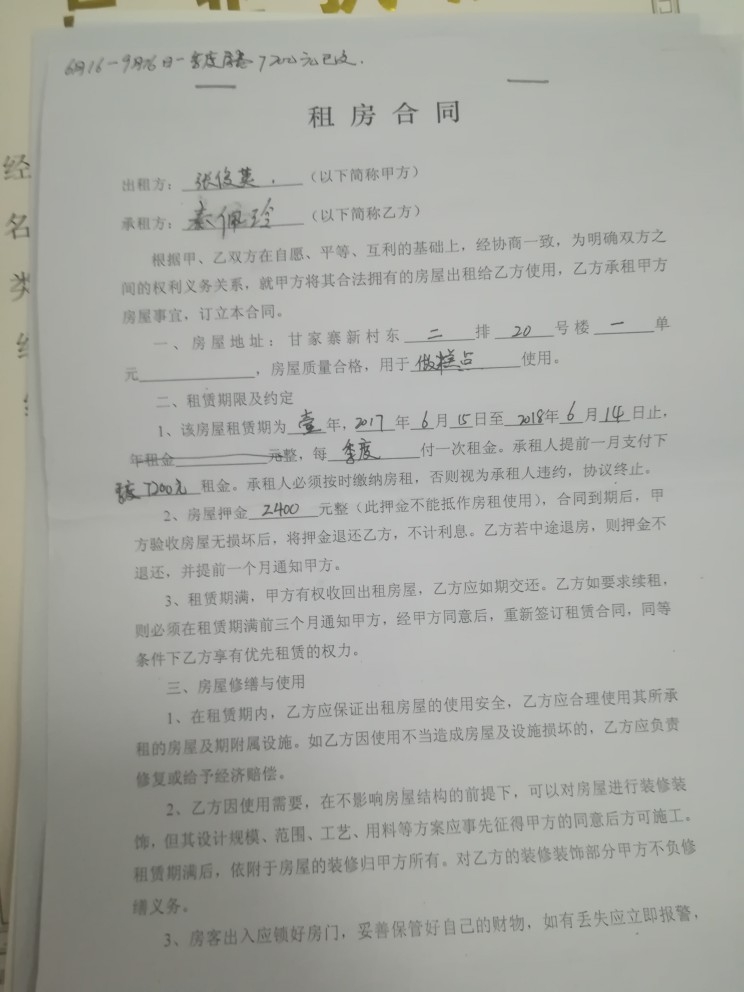 6月16-9月16日一季度房租7200元已交.
租房合同
出租方：张俊英.（以下简称甲方）
承租方：袁佩玲（以下简称乙方）
根据甲、乙双方在自愿、平等、互利的基础上，经协商一致，为明确双方之
间的权利义务关系，就甲方将其合法拥有的房屋出租给乙方使用，乙方承租甲方
房屋事宜，订立本合同。
一、房屋地址：甘家寨新村东 二 排 20 号楼 一 单
元____________，房屋质量合格，用于 做糕点 使用。
二、租赁期限及约定
1、该房屋租赁期为 壹 年，2017 年 6 月 15 日至 2018 年 6 月 14 日止，
年租金__________元整，每 季度 付一次租金。承租人提前一月支付下
7200元 租金。承租人必须按时缴纳房租，否则视为承租人违约，协议终止。
2、房屋押金 2400 元整（此押金不能抵作房租使用），合同到期后，甲
方验收房屋无损坏后，将押金退还乙方，不计利息。乙方若中途退房，则押金不
退还，并提前一个月通知甲方。
3、租赁期满，甲方有权收回出租房屋，乙方应如期交还。乙方如要求续租，
则必须在租赁期满前三个月通知甲方，经甲方同意后，重新签订租赁合同，同等
条件下乙方享有优先租赁的权力。
三、房屋修缮与使用
1、在租赁期内，乙方应保证出租房屋的使用安全，乙方应合理使用其所承
租的房屋及期附属设施。如乙方因使用不当造成房屋及设施损坏的，乙方应负责
修复或给予经济赔偿。
2、乙方因使用需要，在不影响房屋结构的前提下，可以对房屋进行装修装
饰，但其设计规模、范围、工艺、用料等方案应事先征得甲方的同意后方可施工。
租赁期满后，依附于房屋的装修归甲方所有。对乙方的装修装饰部分甲方不负修
缮义务。
3、房客出入应锁好房门，妥善保管好自己的财物，如有丢失应立即报警，
经
名
类